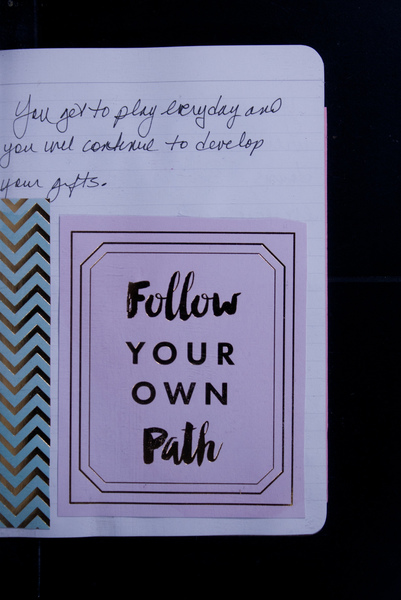 You get to play everyday and
you will continue to develop
your gifts.
Follow
YOUR
OWN
Path